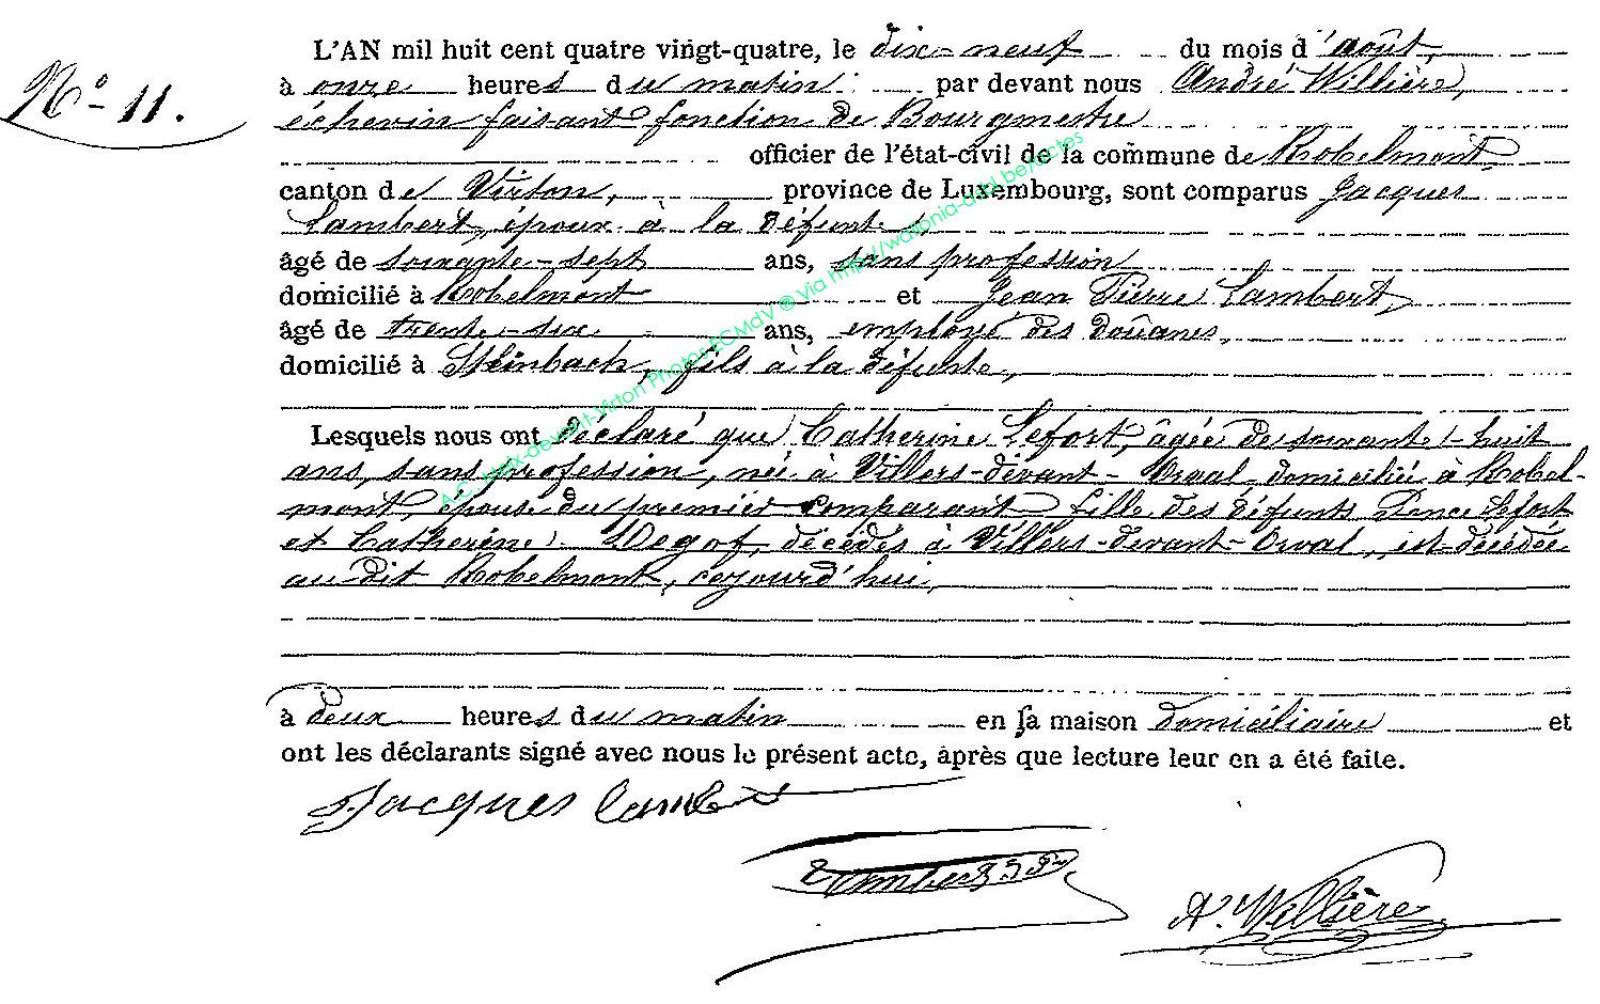 N° 11.
L'AN mil huit cent quatre vingt-quatre, le dix-neuf du mois d'août,
à onze heures du matin par devant nous André Willière,
échevin faisant fonction de Bourgmestre
officier de l'état-civil de la commune de Robelmont,
canton de Virton, province de Luxembourg, sont comparus Jacques
Lambert, époux à la défunte,
âgé de soixante-sept ans, sans profession
domicilié à Robelmont et Jean Pierre Lambert,
âgé de trente-six ans, employé des douânes,
domicilié à Steinbach, fils à la défunte,
Lesquels nous ont déclaré que Catherine Lefort, âgée de soixante-huit
ans, sans profession, née à Villers-devant-Orval, domiciliée à Robel-
mont, épouse du premier comparant fille des défunts Lefort
et Catherine Degof, décédés à Villers-devant-Orval, est décédée
au dit Robelmont, cejourd'hui,
à deux heures du matin en sa maison domiciliaire et
ont les déclarants signé avec nous le présent acte, après que lecture leur en a été faite.
Jacques Lambert
Lambert
A. Willière
A.C. Meix-devant-Virton Photos ECMdV @ Via http://wallonia-asbl.be/actes